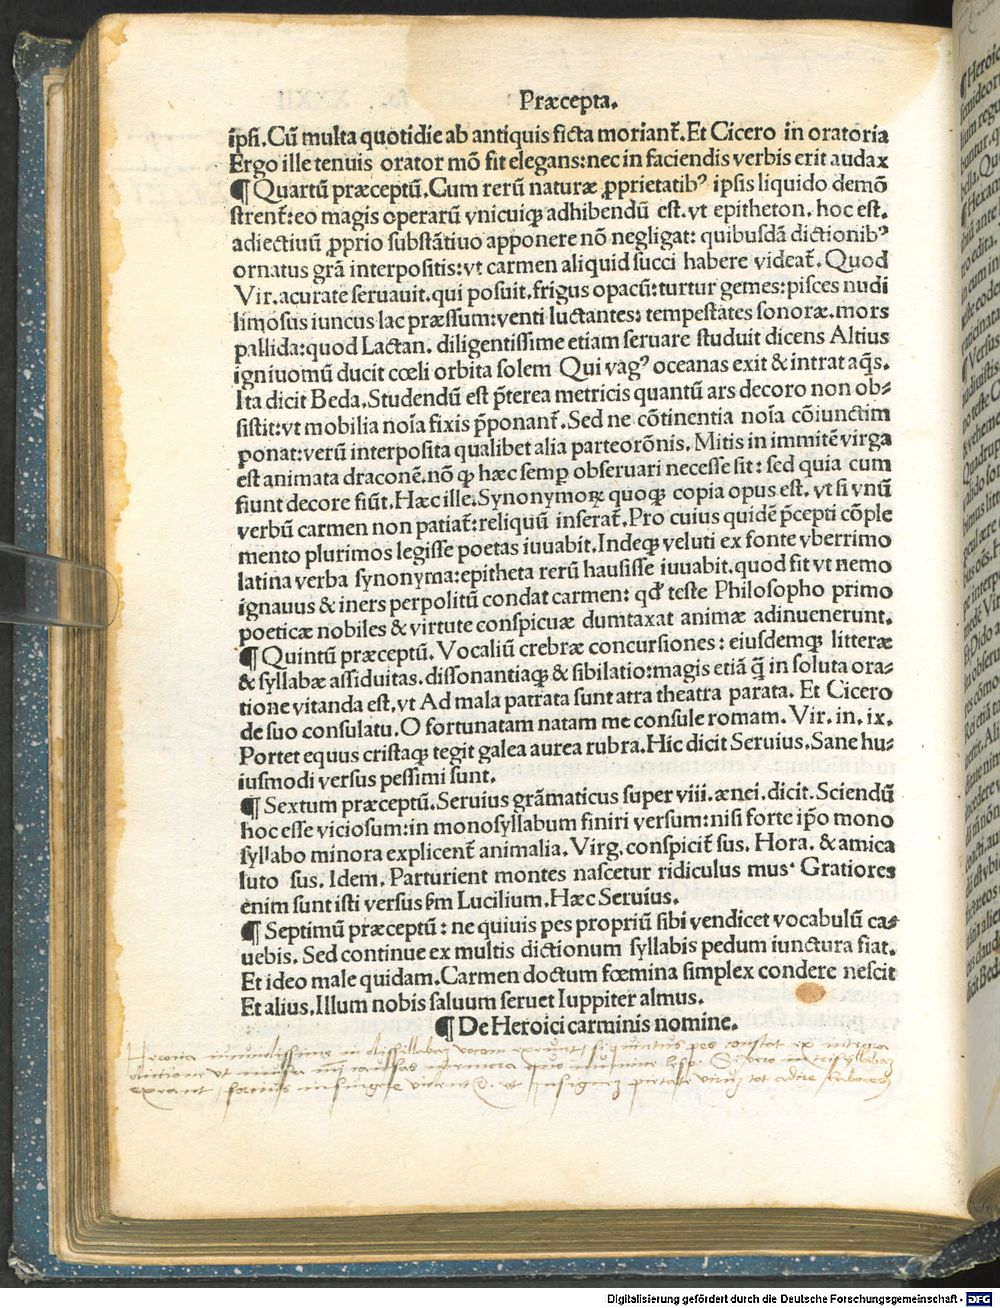 Præcepta.
ip̄si. Cū multa quotidie ab antiquis ficta moriant̄. Et Cicero in oratoria
Ergo ille tenuis orator mō sit elegans: nec in faciendis verbis erit audax
¶ Quartū præceptū. Cum rerū naturæ ꝓprietatibꝰ ipsis liquido demō
strent̄: eo magis operarū vnicuiqꝫ adhibendū est. vt epitheton. hoc est.
adiectiuū ꝓprio substātiuo apponere nō negligat: quibusdā dictionibꝰ
ornatus grā interpositis: vt carmen aliquid succi habere videat̄. Quod
Vir. acurate seruauit. qui posuit. frigus opacū: turtur gemes: pisces nudi
limosus iuncus lac præssum: venti luctantes: tempestates sonoræ. mors
pallida: quod Lactan. diligentissime etiam seruare studuit dicens Altius
igniuomū ducit cœli orbita solem Qui vagꝰ oceanas exit & intrat aq̄s.
Ita dicit Beda. Studendū est p̄terea metricis quantū ars decoro non ob⸗
sistit: vt mobilia noīa fixis p̄ponant̄. Sed ne cōtinentia noīa cōiunctim
ponat: verū interposita qualibet alia parte orōnis. Mitis in immitē virga
est animata draconē. nō ꝙ hæc semꝑ obseruari necesse sit: sed quia cum
fiunt decore fiūt. Hæc ille. Synonymoꝝ quoqꝫ copia opus est. vt si vnū
verbū carmen non patiat̄: reliquū inserat̄. Pro cuius quidē p̄cepti cōple
mento plurimos legisse poetas iuuabit. Indeqꝫ veluti ex fonte vberrimo
latina verba synonyma: epitheta rerū hausisse iuuabit. quod fit vt nemo
ignauus & iners perpolitū condat carmen: qđ teste Philosopho primo
poeticæ nobiles & virtute conspicuæ dumtaxat animæ adinuenerunt.
¶ Quintū præceptū. Vocaliū crebræ concursiones: eiusdemqꝫ litteræ
& syllabæ assiduitas. dissonantiaqꝫ & sibilatio: magis etiā q̄ in soluta ora⸗
tione vitanda est, vt Ad mala patrata sunt atra theatra parata. Et Cicero
de suo consulatu. O fortunatam natam me consule romam. Vir. in. ix.
Portet equus cristaqꝫ tegit galea aurea rubra. Hic dicit Seruius. Sane hu⸗
iusmodi versus pessimi sunt.
¶ Sextum præceptū. Seruius grāmaticus super viii. ænei. dicit. Sciendū
hoc esse viciosum: in monosyllabum finiri versum: nisi forte ip̄o mono
syllabo minora explicent̄ animalia. Virg. conspicit̄ sus. Hora. & amica
luto sus. Idem. Parturient montes nascetur ridiculus mus. Gratiores
enim sunt isti versus ẜm Lucilium. Hæc Seruius.
¶ Septimū præceptū: ne quiuis pes propriū sibi vendicet vocabulū ca⸗
uebis. Sed continue ex multis dictionum syllabis pedum iunctura fiat.
Et ideo male quidam. Carmen doctum fœmina simplex condere nescit
Et alius. Illum nobis saluum seruet Iuppiter almus.
¶ De Heroici carminis nomine.
Heroica iucundissime in dissillabam vocem exeunt, si quintus pes constat ex integra
dictione vt musa mihi causas memora quo numine leso. Si vero in trissillabam
exeant, insignem pietate virum tot adire labores